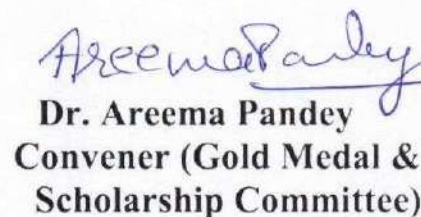 Areema Pandey
Dr. Areema Pandey
Convener (Gold Medal &
Scholarship Committee)